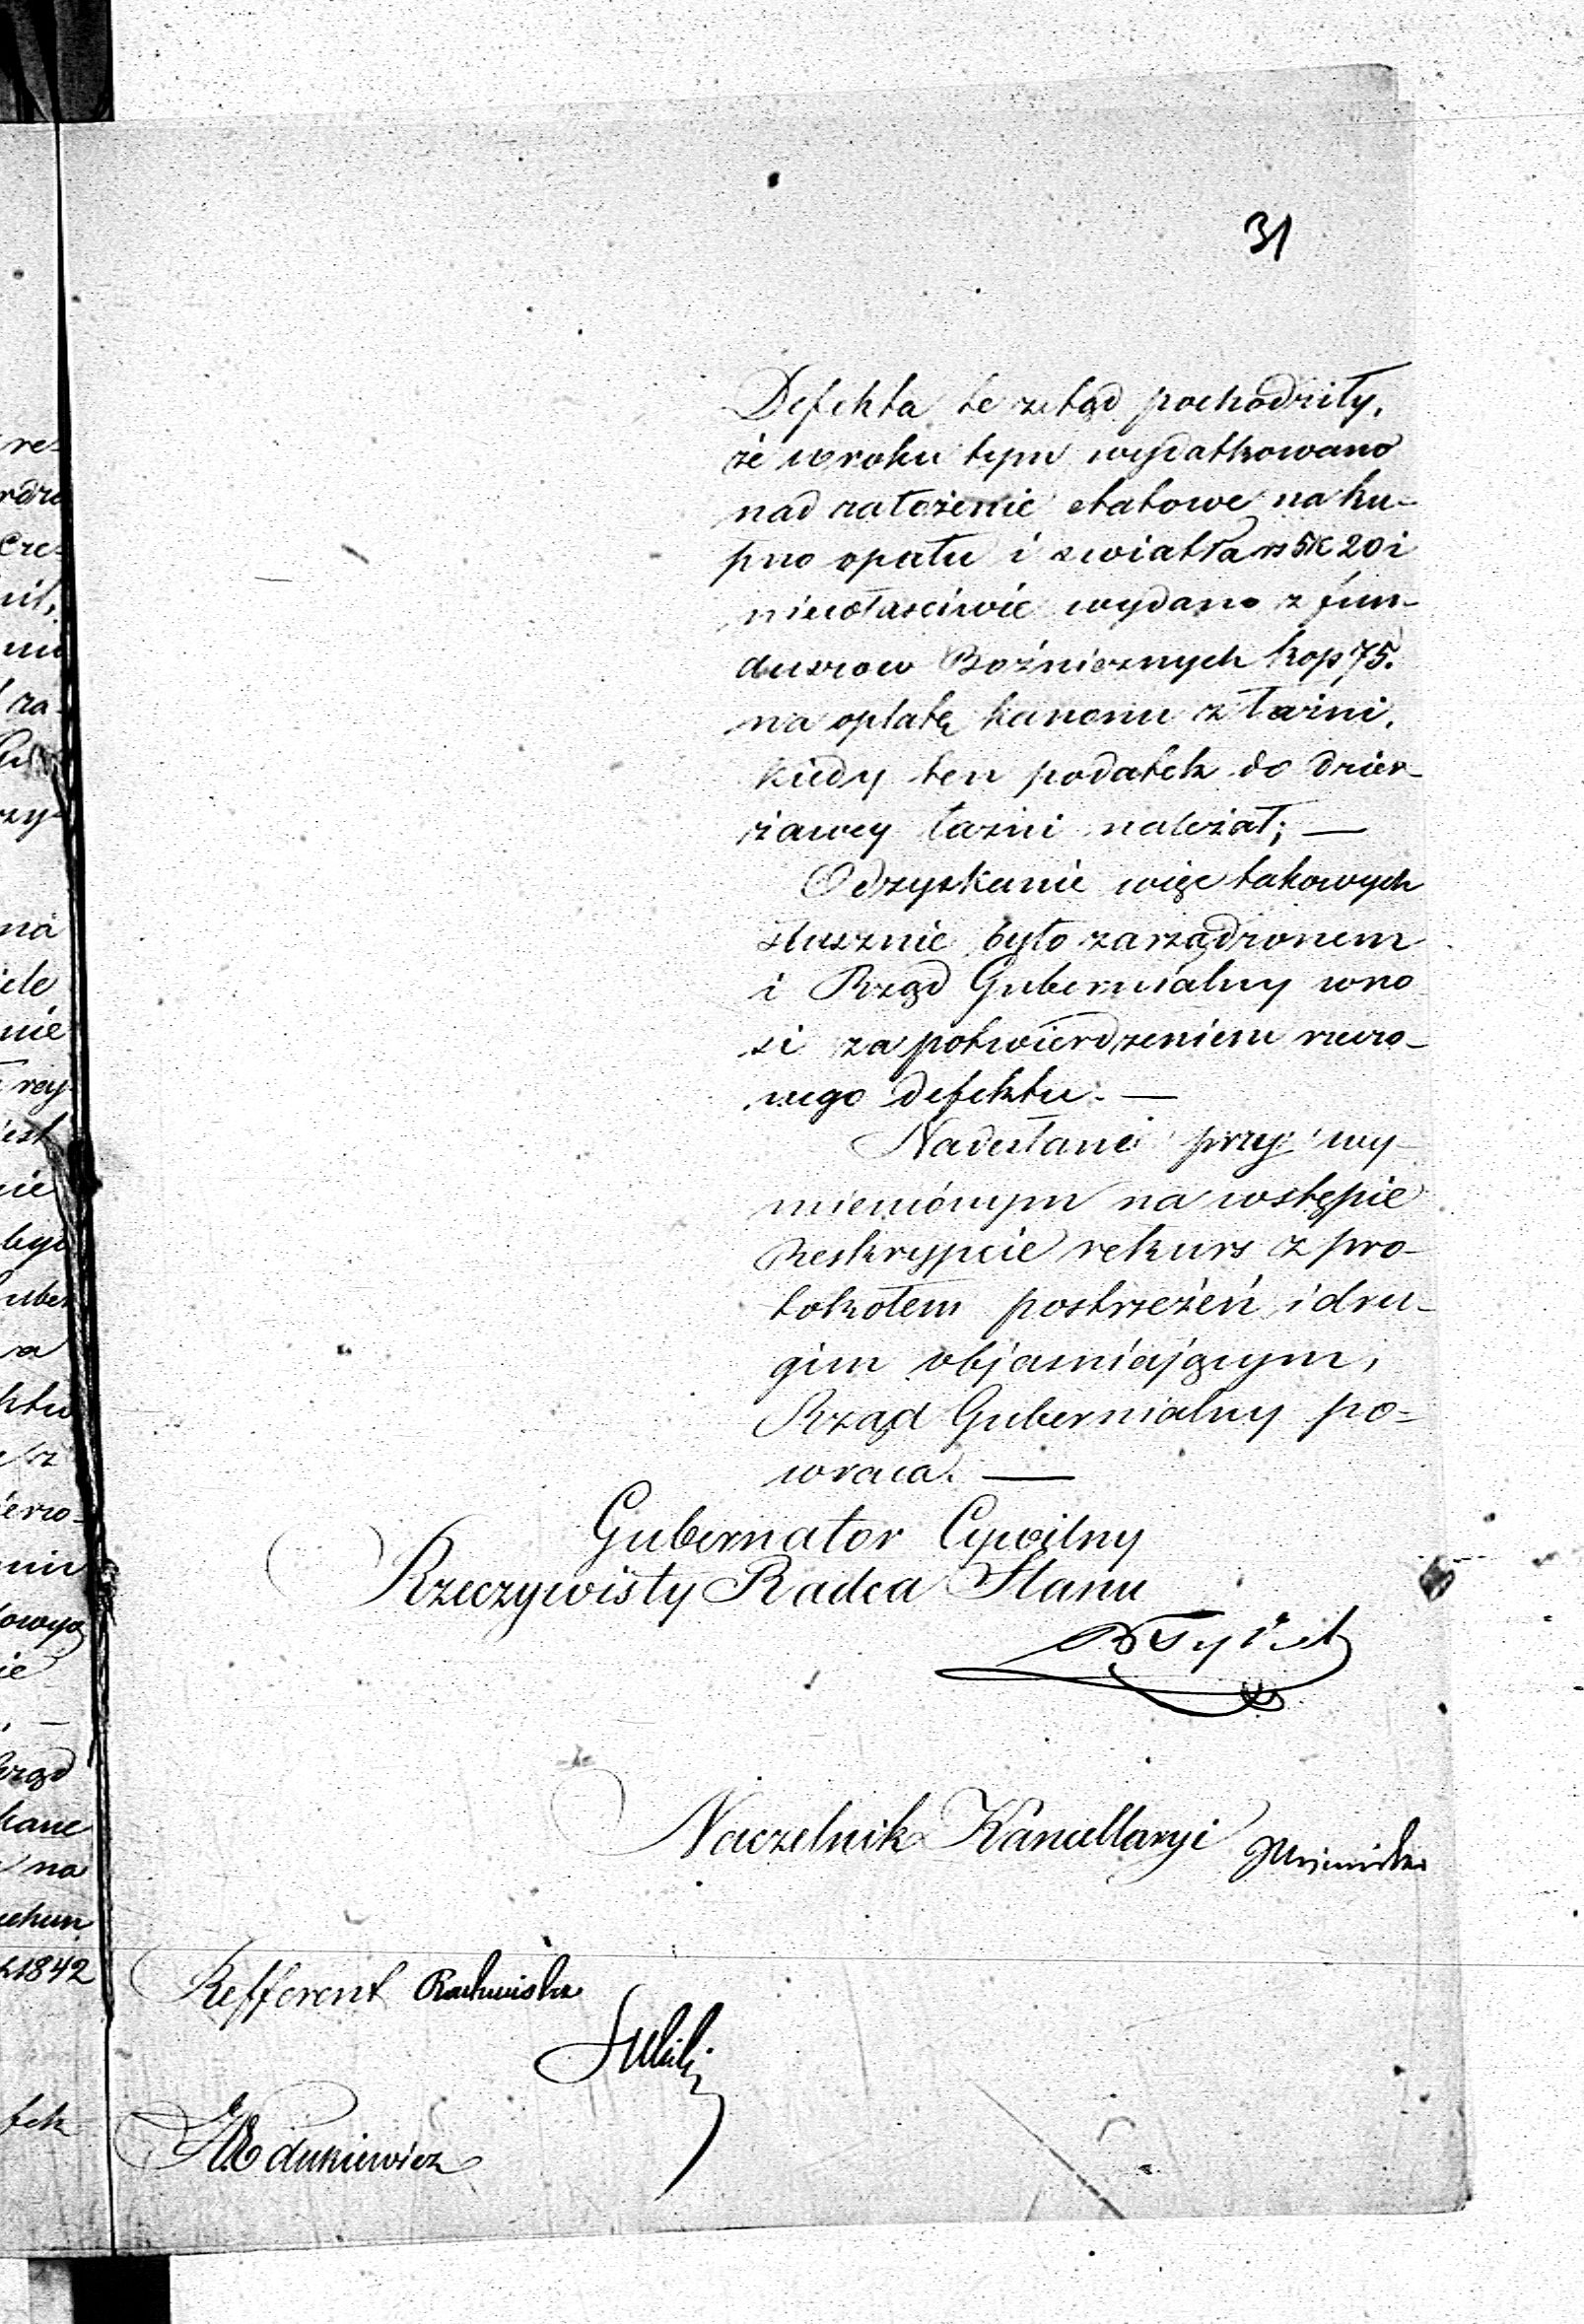 31
Defekta te ztąd pochodziły,
że w roku tym wydatkowano
nad założenie etatowe na ku-
pno opału i swiatła rs 5 k 20 i
niewłasciwie wydano z fun-
duszow Bożnicznych kop 75.
na opłatę kanonu z łaźni,
kiedy ten podatek do dzier-
żawcy łaźni należał; —
Odzyskanie więc takowych
słusznie było zarządzonem
i Rząd Gubernialny wno
si za potwierdzeniem rzeczo-
nego defektu. —
Nadesłane przy wy-
mienionym na wstępie
Reskrypcie rekurs z pro-
tokołem postrzeżeń i dru-
gim objasniającym,
Rząd Gubernialny po-
wraca. —
Gubernator Cywilny
Rzeczywisty Radca Stanu
Naczelnik Kancellaryi
Refferent
re-
na
ele
nie
Rząd
na
1842